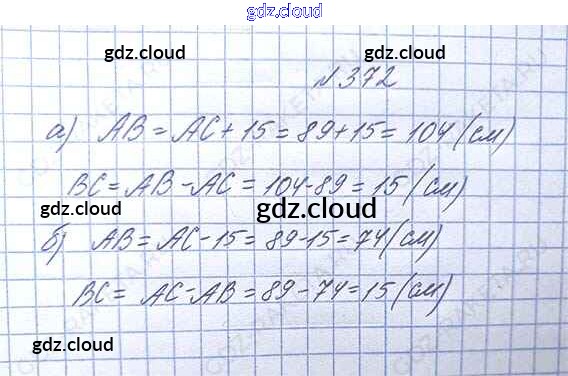 gdz.cloud
gdz.cloud gdz.cloud
№ 372
а) AB = AC + 15 = 89 + 15 = 104 (см)
BC = AB - AC = 104 - 89 = 15 (см)
gdz.cloud gdz.cloud
б) AB = AC - 15 = 89 - 15 = 74 (см)
BC = AC - AB = 89 - 74 = 15 (см)
gdz.cloud gdz.cloud